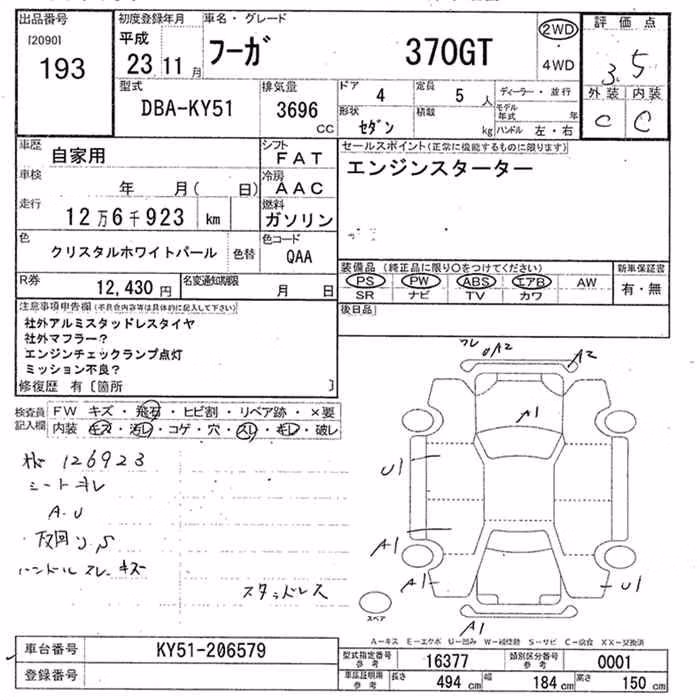 出品番号
[2090]
193
初度登録年月
平成
23 11 月
車名・グレード
フーガ 370GT
2WD
4WD
評価点
3.5
外装 内装
C C
型式
DBA-KY51
排気量
3696 CC
ドア 4
定員 5 人
形状 セダン
積載 kg
ディーラー・並行
モデル年式 年
ハンドル 左・右
車歴 自家用
車検 年 月( 日)
走行 12万6千923 km
色 クリスタルホワイトパール 色替
シフト FAT
冷房 AAC
燃料 ガソリン
色コード QAA
R券 12,430 円
名変通知期限 月 日
セールスポイント(正常に機能するものに限ります)
エンジンスターター
装備品 (純正品に限り○をつけてください)
PS PW ABS エアB AW
SR ナビ TV カワ
新車保証書
有・無
後日品
注意事項申告欄(不具合内容等は具体的に記入して下さい)
社外アルミスタッドレスタイヤ
社外マフラー?
エンジンチェックランプ点灯
ミッション不良?
修復歴 有〔箇所 〕
検査員記入欄
FW キズ・飛石・ヒビ割・リペア跡・×要
内装 キズ・汚レ・コゲ・穴・スレ・キレ・破レ
126923
シート
A.U
ハンドル スレ キズ
スタッドレス
A2
A2
A1
U1
A1
A1
U1
A1
スペア
A-キズ E-エクボ U-凹み W-補修跡 S-サビ C-腐食 XX-交換済
車台番号 KY51-206579
登録番号
型式指定番号 参考 16377
類別区分番号 参考 0001
車庫証明用 参考 長さ 494 cm 幅 184 cm 高さ 150 cm